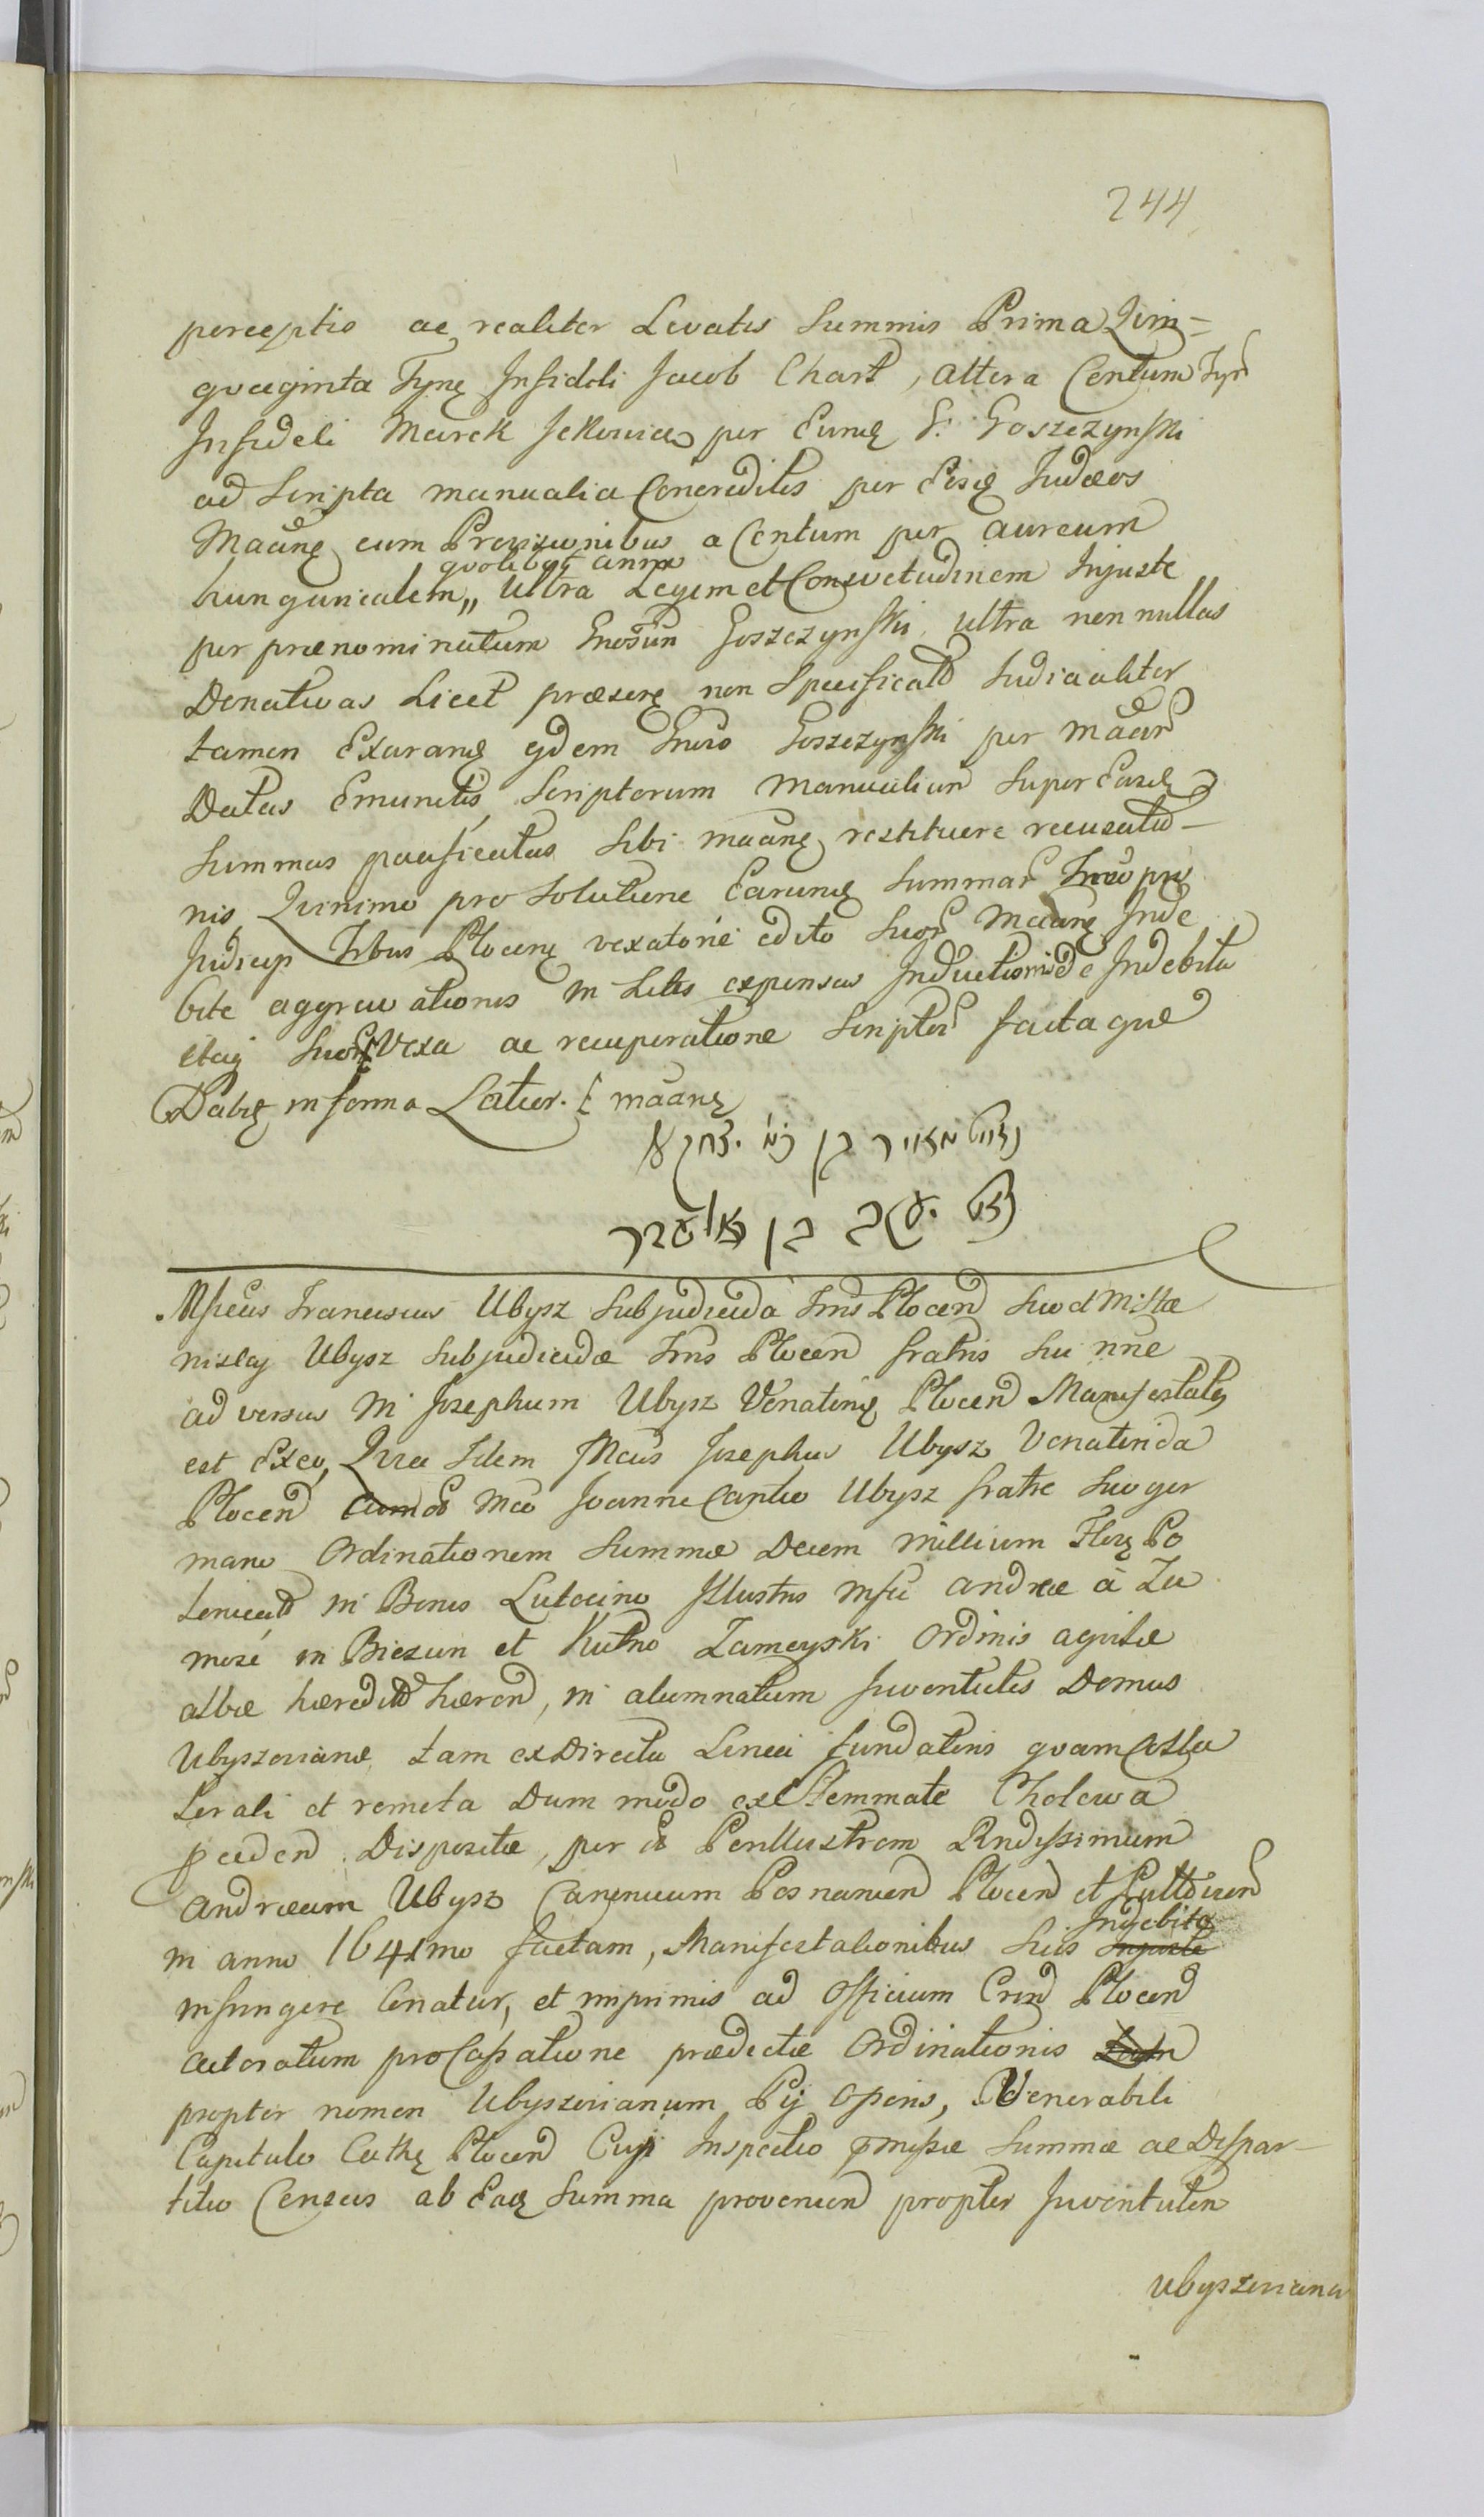 244
perceptis ac realiter Levatis Summis Prima Quin=
quaginta Tynę Infideli Jacob Chart, altera Centum Tyn
Infideli Marek Jekowicz per Eunę G. Goszczynski
ad Scripta manualia Concreditis per Eosę Judæos
Maanę cum Provisionibus a Centum per aureum
quolibet anno
hungaricalem,, Ultra Legem et Consvetudinem Injuste
per prænominatum Gnosum Goszczynski ultra non nullas
Donativas Licet præsenę non Specificatd Judicialiter
tamen Exaranę eydem Gnoso Goszczynski per maan
Datas Emunctis, Scriptorum Manualium Super Easdę
Summas pacificatas Sibi maanę restituere recusatio=
nis, Quinimo pro Solutione Earunę Summar
Judicij Plocenę vexatorie edito Suor Maanę Inde
bite aggravationis in Litis expensas Inductionis de Indebita
Suor Vexa ac recuperatione Scriptor factaque
Dabię in forma Latior. maanę
Mficus Franciscus Ubysz Subjudicida Trris Plocend Suo et Mi Sta
nislaj Ubysz Subjudicidæ Trris Plocen fratris Sui nne
adversus M Josephum Ubysz Venatorię Plocend Manifestatę
est Exeo, Quia Idem Mcus Josephus Ubysz Venatorida
Plocend cum Mco Joanne Cantio Ubysz fratre Suo ger
mano Ordinationem Summæ Decem millium Florę Po
lonicatd in Bonis Lutocino Illustris Mfci andreæ à Za
mosć in Biezun et Kutno Zamoyski Ordinis aquilæ
albæ hæreditd hæren, in alumnatum Juventutis Domus
Ubyszovianæ tam ex Directa Linea fundatoris quam Colla
terali et remota Dum modo ex Stemmate Cholewa
Dispositæ, per Perillustrem Rndissimum
andream Ubysz Canonicum Posnanien Plocen et Pulttovien
in anno 1641mo factam, Manifestationibus Suis Injuste
Indebite
infringere Conatur, et inprimis ad Officium Cren Plocend
actoratum pro Cassatione prædictæ Ordinationis
propter nomen Ubyszovianum Pij Operis, Venerabili
Capitulo Cathę Plocend Cuji Inspectio pmissæ Summæ ac Dispar=
titio Census ab Eaę Summa provenien propter Juventutem
Ubyszoviana